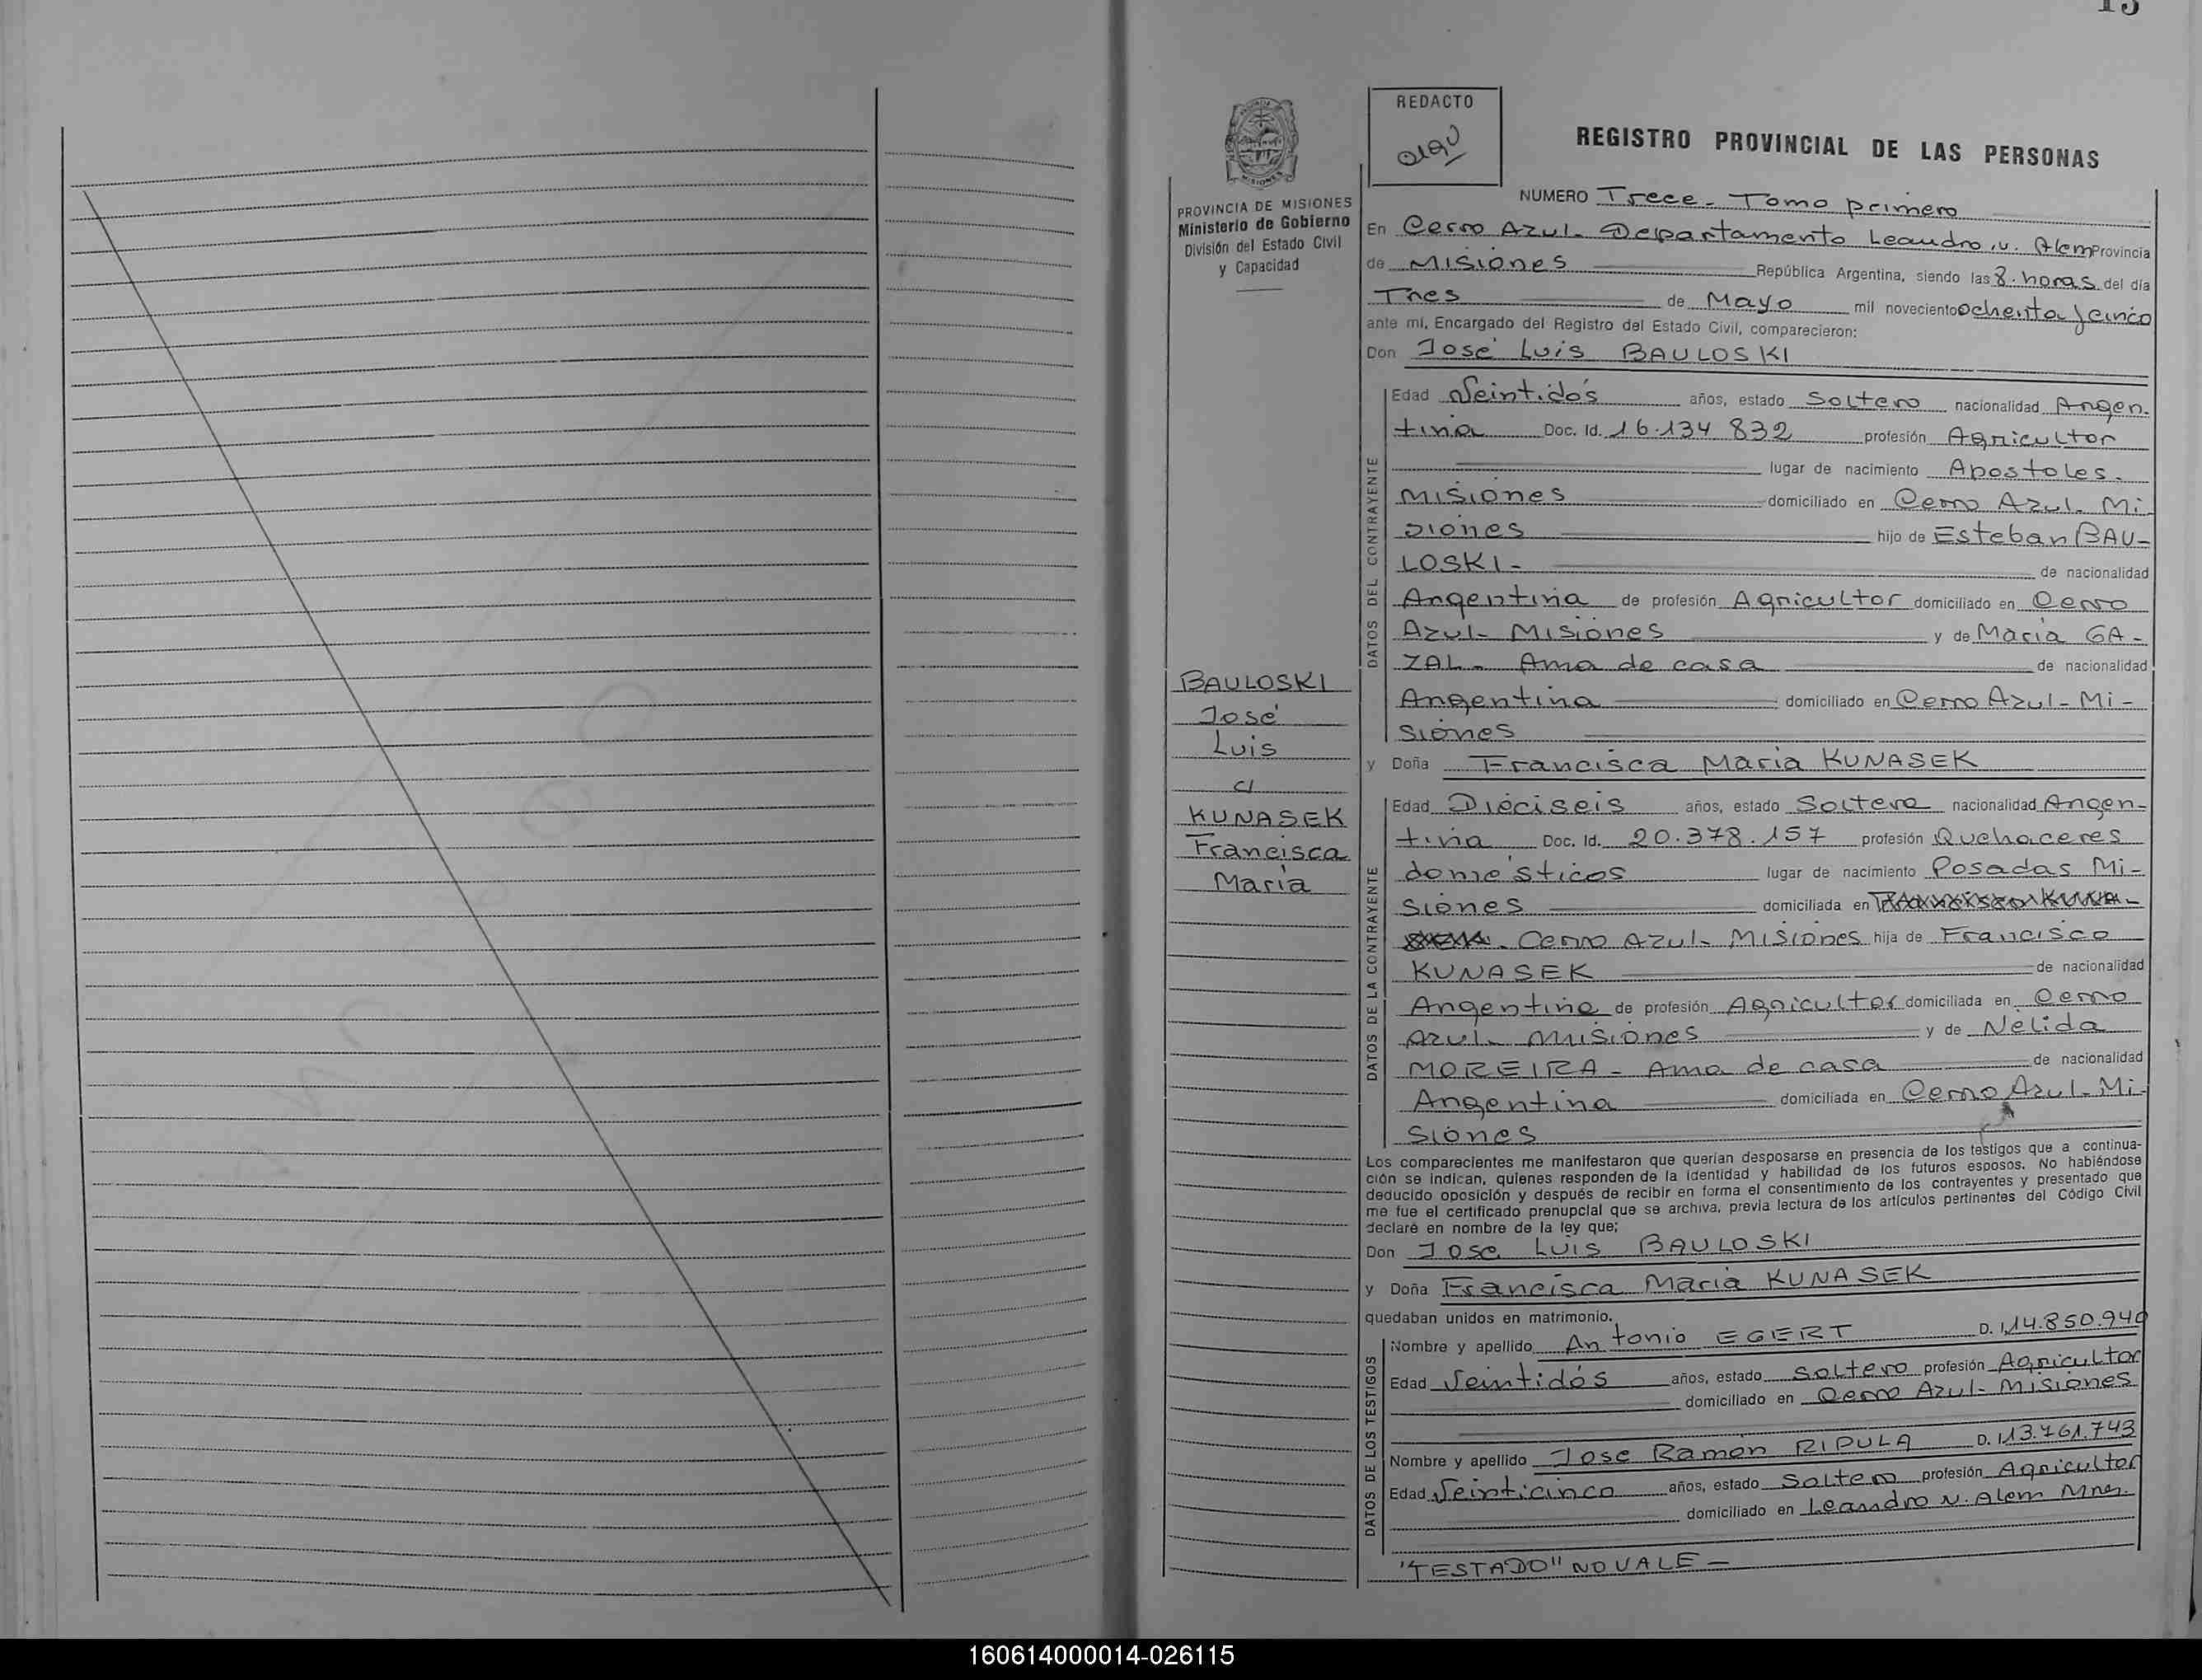 13
REDACTO
REGISTRO PROVINCIAL DE LAS PERSONAS
PROVINCIA DE MISIONES
Ministerio de Gobierno
División del Estado Civil
y Capacidad
BAULOSKI
José
Luis
c/
KUNASEK
Francisca
María
NUMERO Trece - Tomo primero
En Cerro Azul - Departamento Leandro, N. Alem Provincia
de Misiones República Argentina, siendo las 8. horas del día
Tres de Mayo mil noveciento Ochenta y cinco
ante mí, Encargado del Registro del Estado Civil, comparecieron:
Don José Luis BAULOSKI
DATOS DEL CONTRAYENTE
Edad Veintidós años, estado Soltero nacionalidad Argen-
tina Doc. Id. 16.134 832 profesión Agricultor
lugar de nacimiento Apostoles -
Misiones domiciliado en Cerro Azul - Mi-
siones hijo de Esteban BAU-
LOSKI - de nacionalidad
Argentina de profesión Agricultor domiciliado en Cerro
Azul - Misiones y de María GA-
ZAL - Ama de casa de nacionalidad
Argentina domiciliado en Cerro Azul - Mi-
siones
y Doña Francisca María KUNASEK
DATOS DE LA CONTRAYENTE
Edad Dieciseis años, estado Soltera nacionalidad Argen-
tina Doc. Id. 20.378.157 profesión Quehaceres
domésticos lugar de nacimiento Posadas Mi-
siones domiciliada en
- Cerro Azul - Misiones hija de Francisco
KUNASEK de nacionalidad
Argentina de profesión Agricultor domiciliada en Cerro
Azul - Misiones y de Nélida
MOREIRA - Ama de casa de nacionalidad
Argentina domiciliada en Cerro Azul - Mi-
siones
Los comparecientes me manifestaron que querían desposarse en presencia de los testigos que a continua-
ción se indican, quienes responden de la identidad y habilidad de los futuros esposos. No habiéndose
deducido oposición y después de recibir en forma el consentimiento de los contrayentes y presentado que
me fue el certificado prenupcial que se archiva, previa lectura de los artículos pertinentes del Código Civil
declaré en nombre de la ley que:
Don Jose Luis BAULOSKI
y Doña Francisca María KUNASEK
quedaban unidos en matrimonio.
DATOS DE LOS TESTIGOS
Nombre y apellido Antonio EGERT D. I. 14.850.940
Edad Veintidós años, estado Soltero profesión Agricultor
domiciliado en Cerro Azul - Misiones
Nombre y apellido Jose Ramón RIPULA D. I. 13.761.743
Edad Veinticinco años, estado Soltero profesión Agricultor
domiciliado en Leandro N. Alem Mnes.
"TESTADO" NO VALE -
160614000014-026115